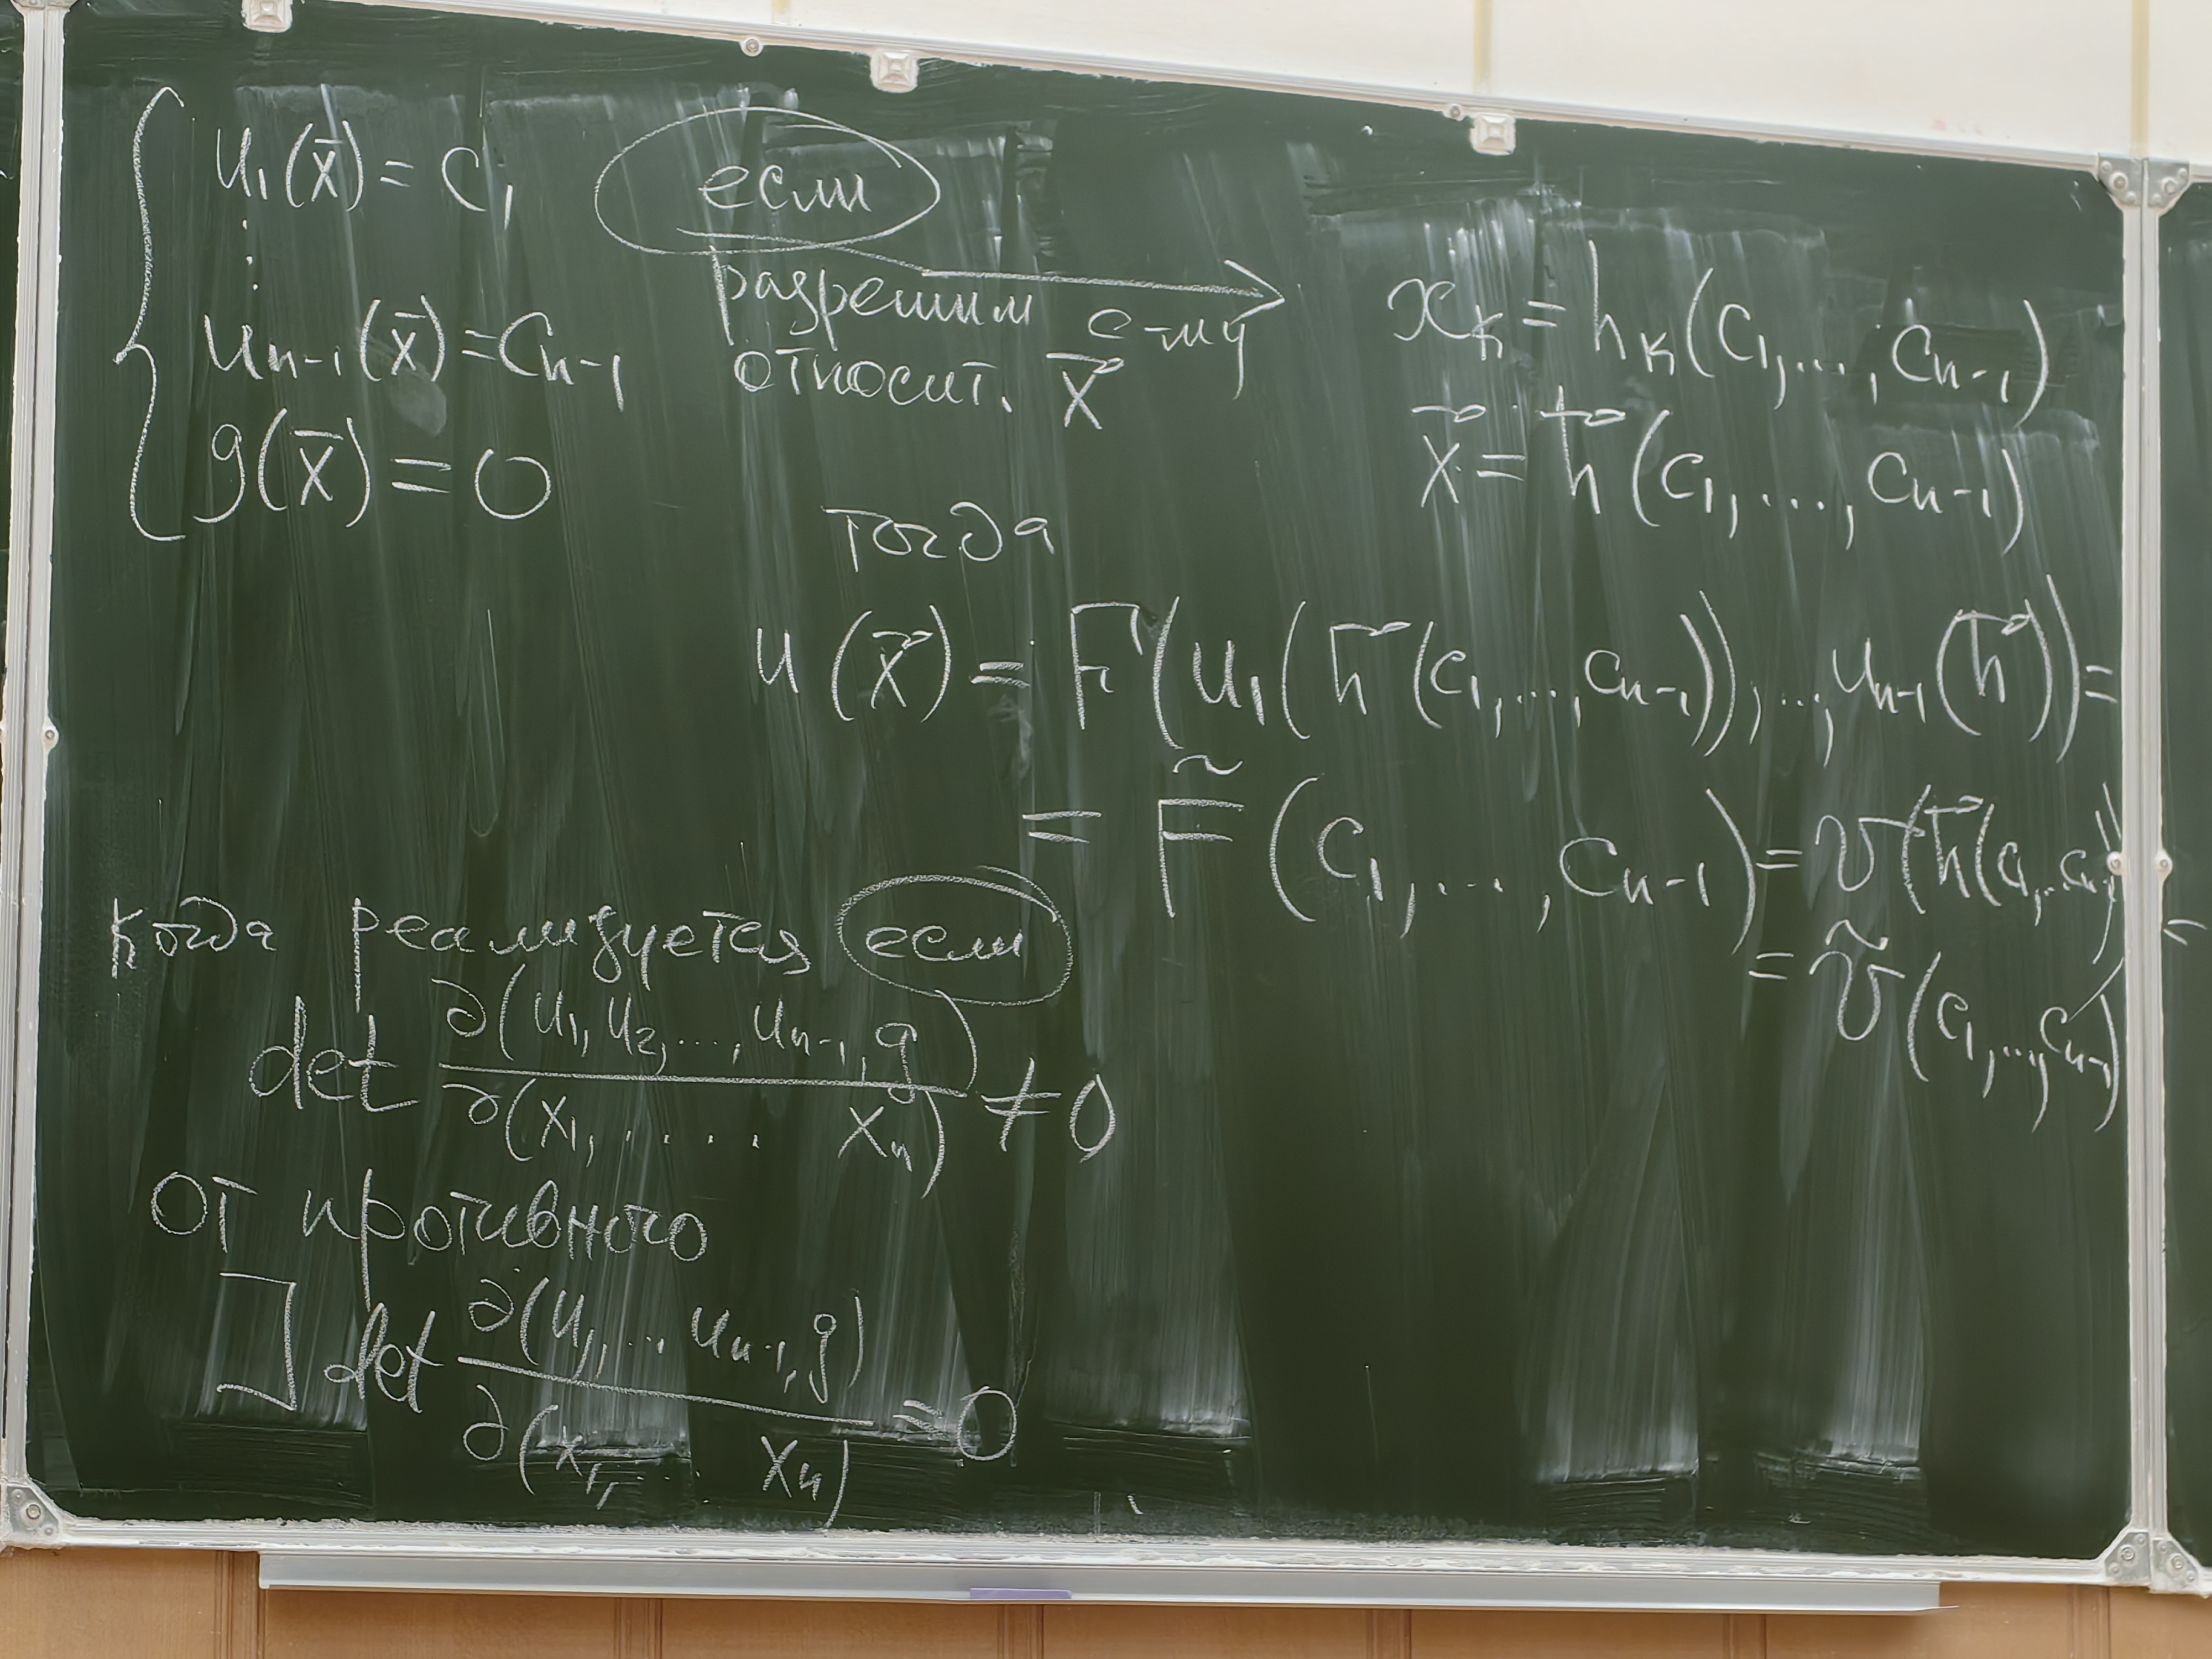 u₁(x̄) = c₁ если
⋮ разрешим с-му
uₙ₋₁(x̄) = cₙ₋₁ относит. x⃗
g(x̄) = 0
xₖ = hₖ(c₁,...,cₙ₋₁)
x⃗ = h⃗(c₁,...,cₙ₋₁)
тогда
u(x⃗) = F(u₁(h⃗(c₁,...,cₙ₋₁)),...,uₙ₋₁(h⃗)) =
= F̃(c₁,...,cₙ₋₁) = v(h⃗(c₁,..cₙ₋₁)) =
= ṽ(c₁,...,cₙ₋₁)
когда реализуется если
det ∂(u₁,u₂,...,uₙ₋₁,g)/∂(x₁,..... xₙ) ≠ 0
от противного
] det ∂(u₁,... uₙ₋₁,g)/∂(x₁,... xₙ) = 0